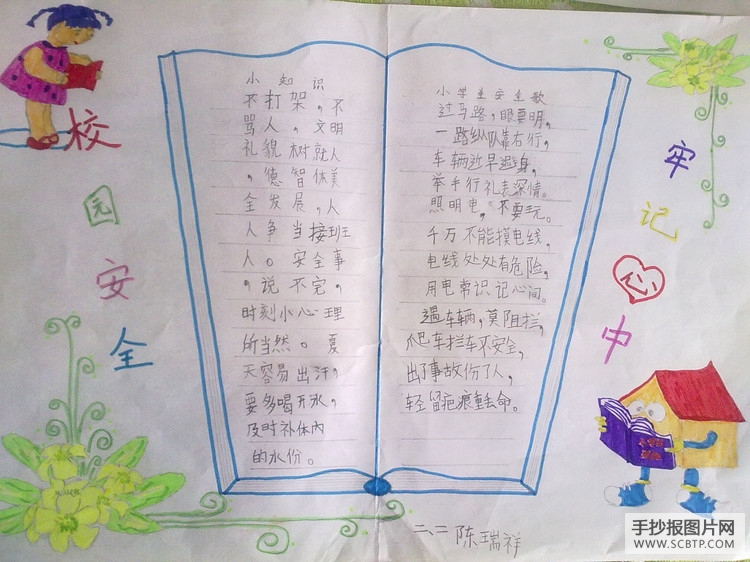 校
园
安
全
小知识
不打架，不
骂人，文明
礼貌树就人
，德智体美
全发展，人
人争当接班
人。安全事
，说不完，
时刻小心理
所当然。夏
天容易出汗，
要多喝开水，
及时补体内
的水份。
小学生安全歌
过马路，眼要明，
一路纵队靠右行，
车辆近早避身，
举手行礼表深情。
照明电，不要玩。
千万不能摸电线，
电线处处有危险，
用电常识记心间。
遇车辆，莫阻拦，
爬车拦车不安全，
出了事故伤了人，
轻留疤痕重丢命。
牢
记
心
中
二、二 陈瑞祥
手抄报图片网
WWW.SCBTP.COM